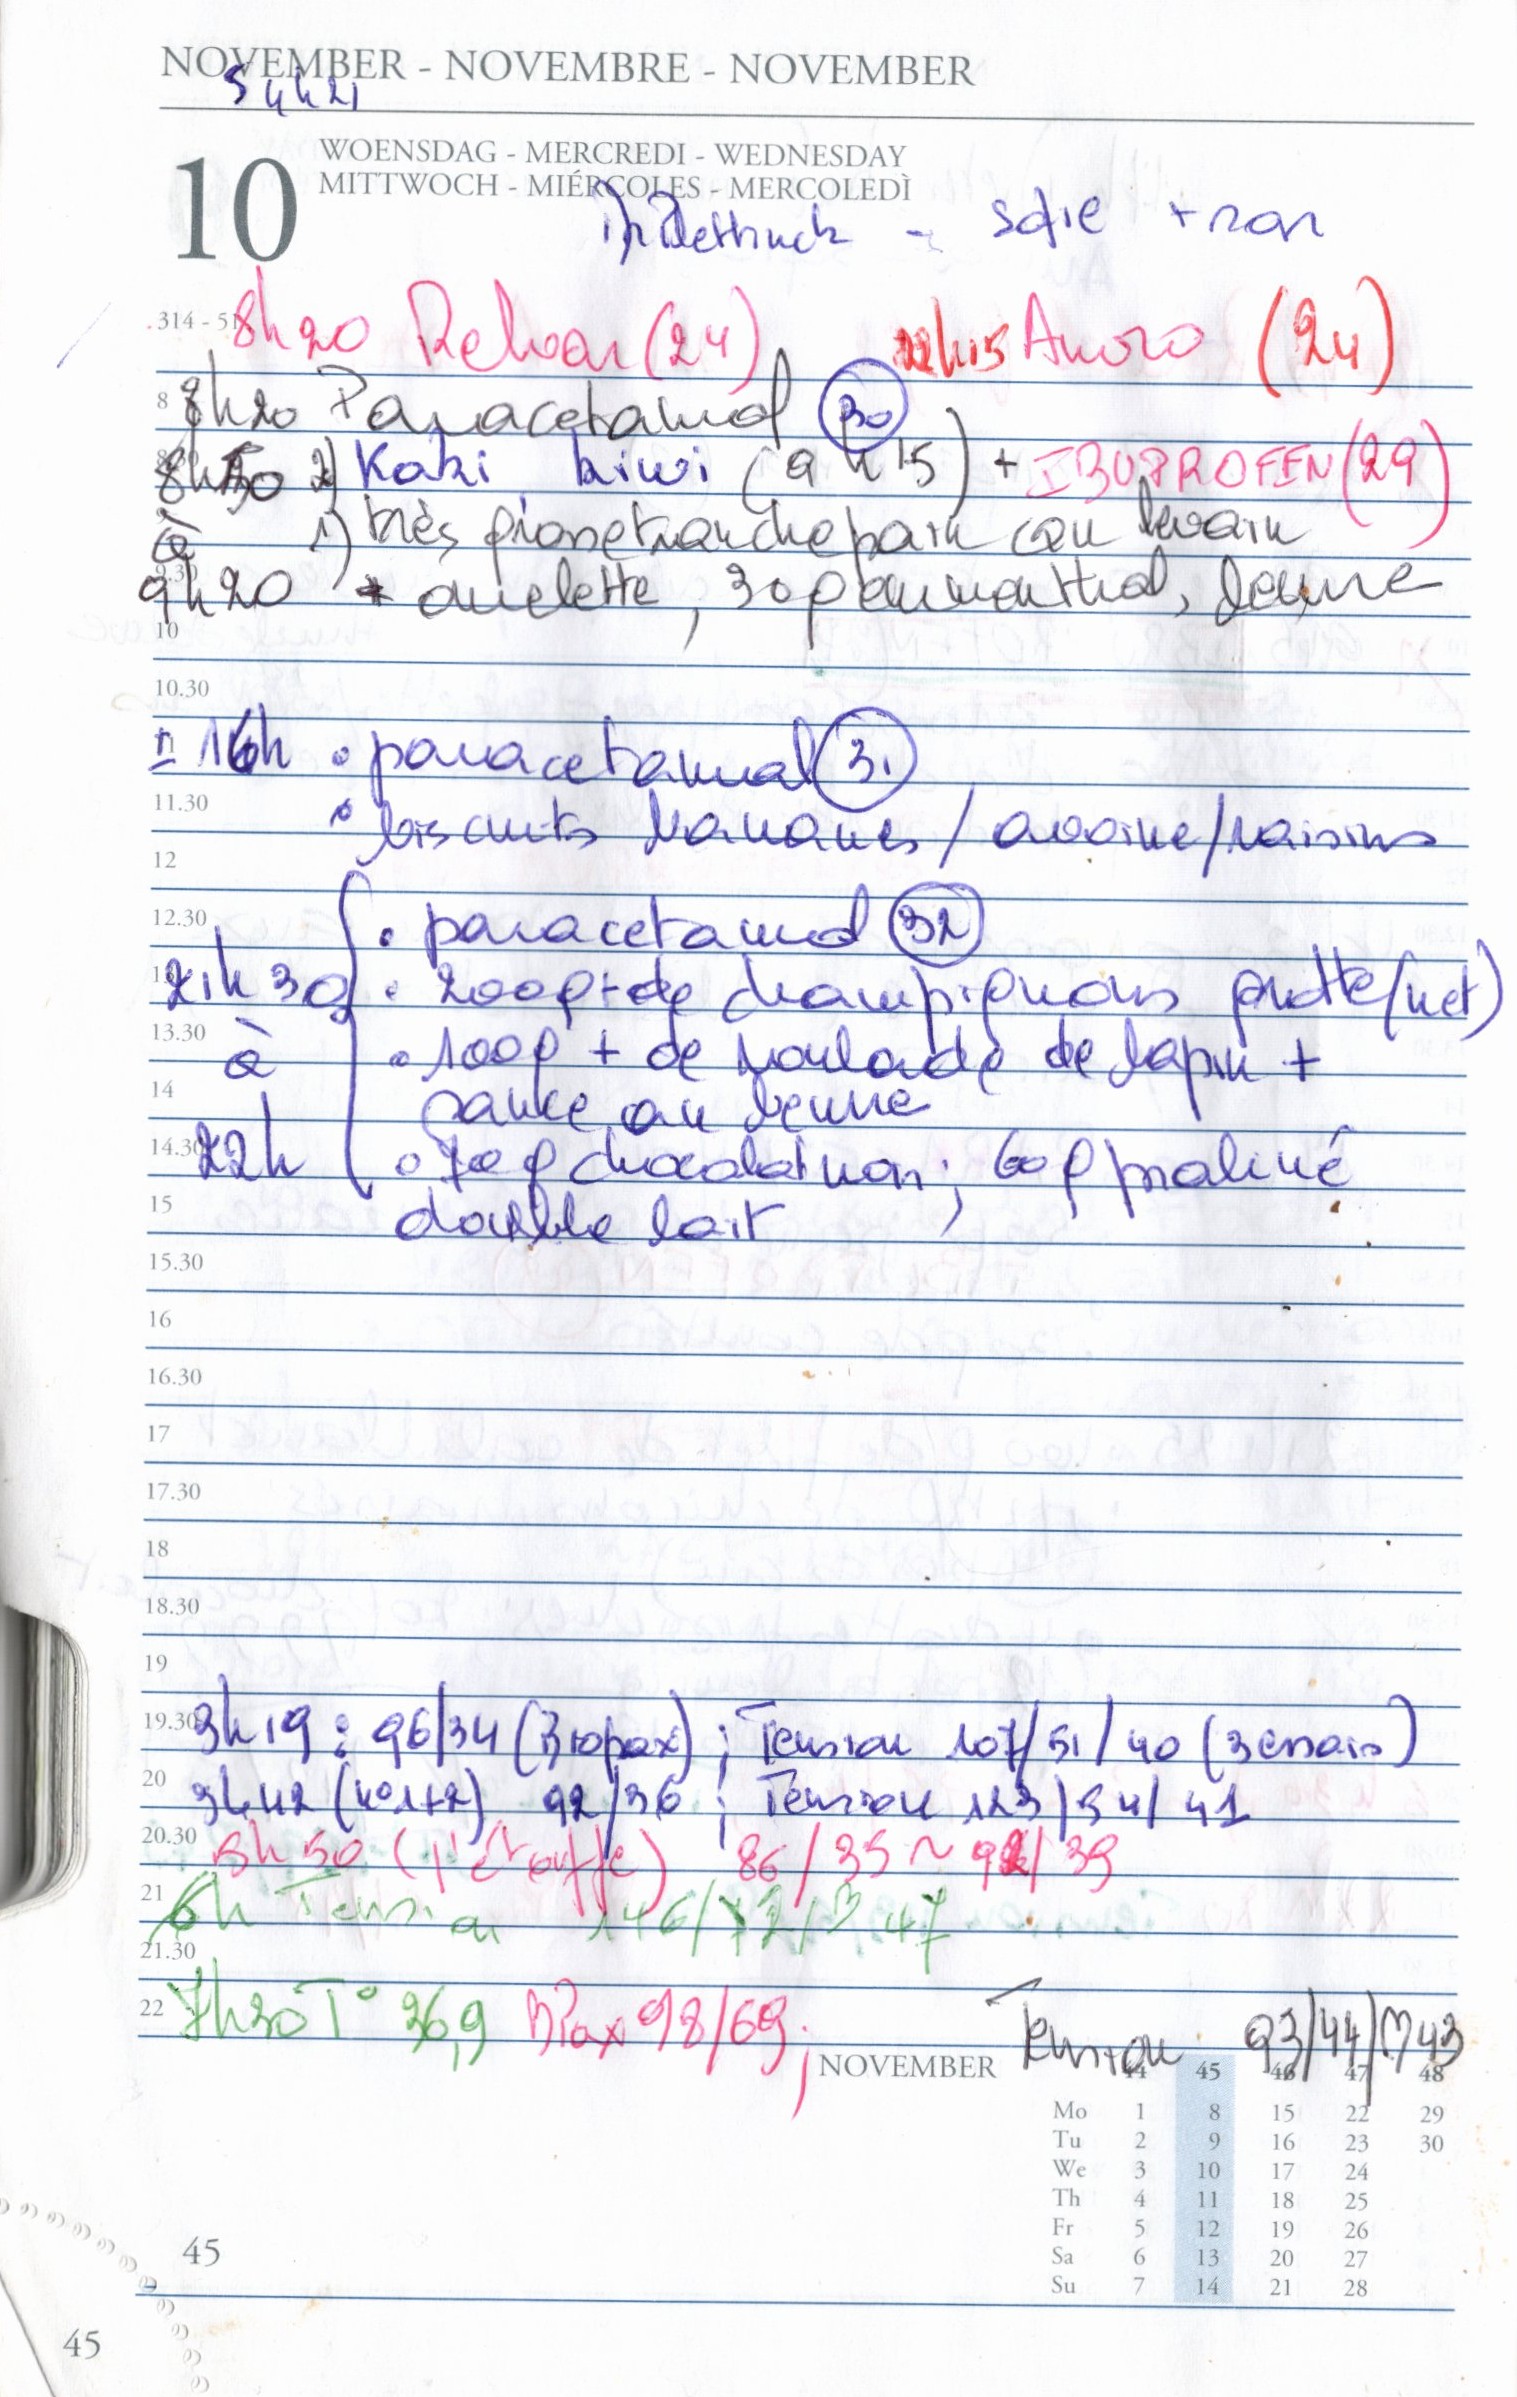 NOVEMBER - NOVEMBRE - NOVEMBER
5 4h21
10
WOENSDAG - MERCREDI - WEDNESDAY
MITTWOCH - MIÉRCOLES - MERCOLEDÌ
314 - 51
8h20 Relvar (24) 22h15 Anoro (24)
8 8h20 Paracetamol 30
2) Kaki kiwi (9h15) + IBUPROFEN (29)
à 1) très grosse tranche pain au levain
9.30
9h20 omelette, 30g emmenthal, beurre
10
10.30
11 16h • paracetamol 31
11.30
• biscuits bananes / avoine / raisins
12
12.30 • paracetamol 32
21h30 • 200g + de champignons grotte (net)
13.30
à • 100g + de roulade de lapin +
14
sauce au beurre
14.30 22h • 70g chocolat noir ; 60g praliné
15
double lait
15.30
16
16.30
17
17.30
18
18.30
19
19.30 3h19 : 96/34 (Biopax) ; Tension 107/51/40 (3 essais)
20 3h42 (n°1+2) 92/36 ; Tension 123/54/41
20.30 5h50 (j'étouffe) 86/35 ~ 92/39
21 6h Tension 146/72/47
21.30
22 7h30 T° 36,9 98/69 ; Tension 93/44/43
NOVEMBER 44 45 46 47 48
Mo 1 8 15 22 29
Tu 2 9 16 23 30
We 3 10 17 24
Th 4 11 18 25
Fr 5 12 19 26
Sa 6 13 20 27
Su 7 14 21 28
45
45